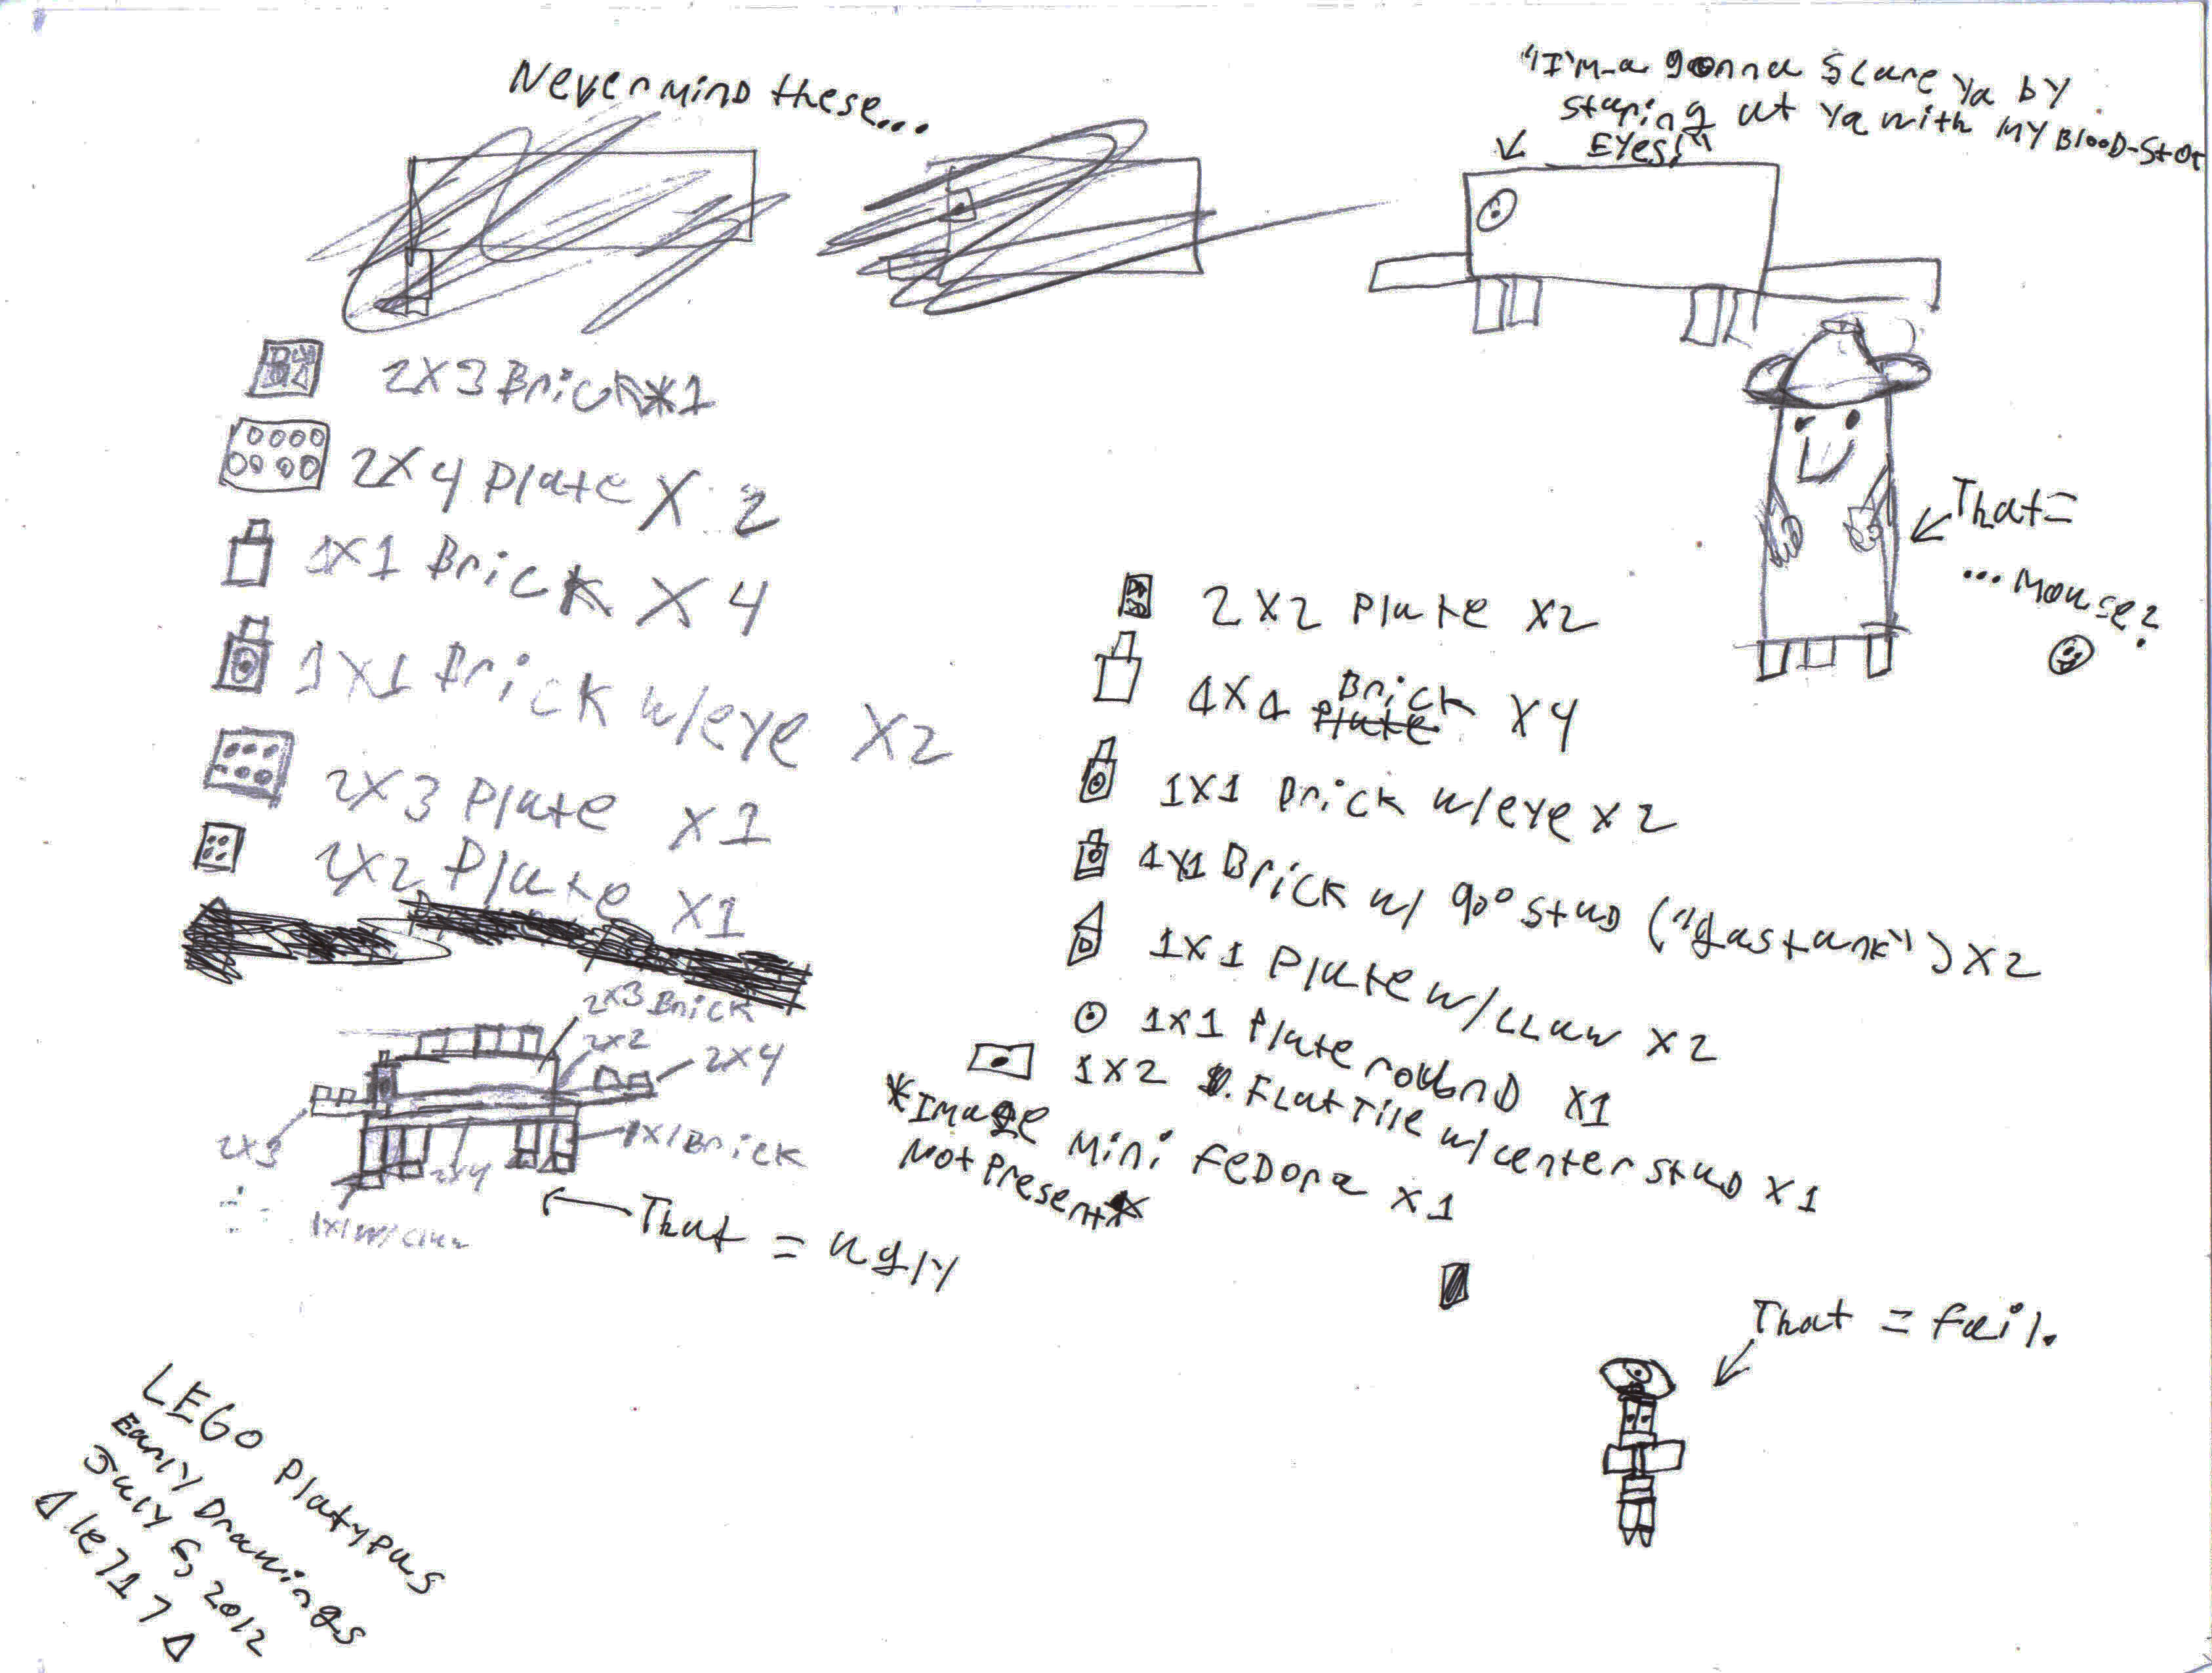 Nevermind these...
"I'm-a gonna scare ya by
staring at ya with my Blood-Shot
Eyes!"
2X3 Brick*1
2X4 Plate X 2
1X1 Brick X 4
1X1 Brick w/eye X2
2X3 Plate X1
2X2 Plate X1
2x3 Brick
2x2
2x4
2x3
1x1 Brick
2x4
1x1 w/claw
That = ugly
That=
...Mouse?
2X2 Plate X2
1X1 Plate Brick X4
1X1 Brick w/eye X2
1X1 Brick w/ 90° stud ("gastank") X2
1X1 Plate w/claw X2
1X1 Plate round X1
1X2 Flat Tile w/center stud X1
*Image
Not Present*
Mini Fedora X1
That = fail.
LEGO Platypus
Early Drawings
July 5, 2012